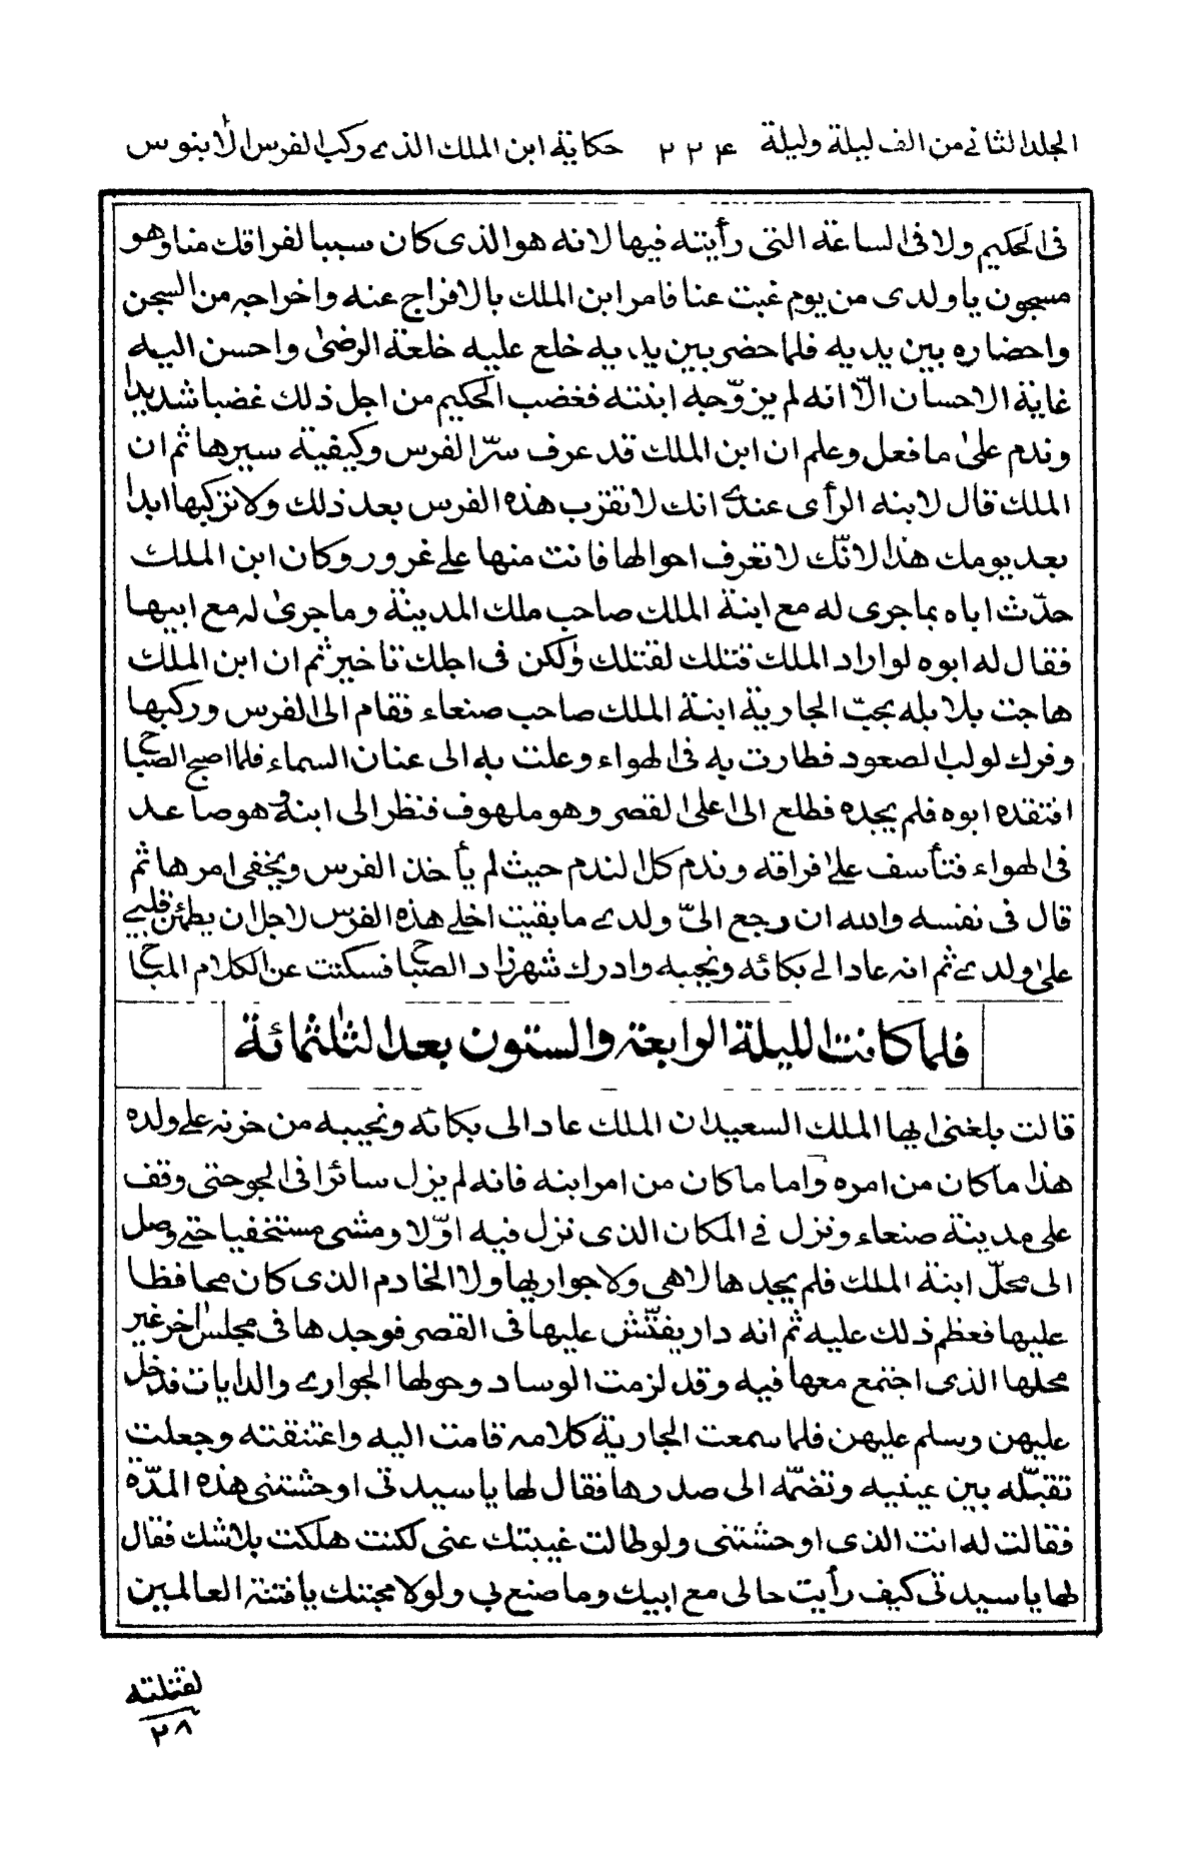 المجلد الثاني من الف ليلة وليلة ٢٢٤ حكاية ابن الملك الذي ركب الفرس الأبنوس
فى الحكيم ولا فى الساعة التى رأيته فيها لانه هو الذى كان سببا لفراقك منا وهو
مسجون يا ولدى من يوم غبت عنا فامر ابن الملك بالافراج عنه واخراجه من السجن
واحضاره بين يديه فلما حضر بين يديه خلع عليه خلعة الرضى واحسن اليه
غاية الاحسان الّا انه لم يزوّجه ابنته فغضب الحكيم من اجل ذلك غضبا شديدا
وندم على ما فعل وعلم ان ابن الملك قد عرف سرّ الفرس وكيفية سيرها ثم ان
الملك قال لابنه الرأى عندى انك لا تقرب هذه الفرس بعد ذلك ولا تركبها ابدا
بعد يومك هذا لانّك لا تعرف احوالها فانت منها على غرور وكان ابن الملك
حدّث اباه بما جرى له مع ابنة الملك صاحب ملك المدينة وما جرى له مع ابيها
فقال له ابوه لو اراد الملك قتلك لقتلك ولكن فى اجلك تاخير ثم ان ابن الملك
هاجت بلابله بحبّ الجارية ابنة الملك صاحب صنعاء فقام الى الفرس وركبها
وفرك لولب الصعود فطارت به فى الهواء وعلت به الى عنان السماء فلما اصبح الصباح
افتقده ابوه فلم يجده فطلع الى اعلى القصر وهو ملهوف فنظر الى ابنه وهو صاعد
فى الهواء فتأسف على فراقه وندم كل الندم حيث لم يأخذ الفرس ويخفى امرها ثم
قال فى نفسه والله ان رجع الىّ ولدى ما بقيت اخلى هذه الفرس لاجل ان يطمئن قلبي
على ولدى ثم انه عاد الى بكائه ونحيبه وادرك شهرزاد الصباح فسكتت عن الكلام المباح
فلما كانت الليلة الرابعة والستون بعد الثلثمائة
قالت بلغنى ايها الملك السعيد ان الملك عاد الى بكائه ونحيبه من حزنه على ولده
هذا ما كان من امره واما ما كان من امر ابنه فانه لم يزل سائرا فى الجو حتى وقف
على مدينة صنعاء ونزل في المكان الذى نزل فيه اوّلا ومشى مستخفيا حتى وصل
الى محلّ ابنة الملك فلم يجدها لا هى ولا جواريها ولا الخادم الذى كان محافظا
عليها فعظم ذلك عليه ثم انه دار يفتّش عليها فى القصر فوجدها فى مجلس اخر غير
محلها الذى اجتمع معها فيه وقد لزمت الوساد وحولها الجواري والدايات فدخل
عليهن وسلم عليهن فلما سمعت الجارية كلامه قامت اليه واعتنقته وجعلت
تقبّله بين عينيه وتضمّه الى صدرها فقال لها يا سيدتى اوحشتنى هذه المدّة
فقالت له انت الذى اوحشتنى ولو طالت غيبتك عنى لكنت هلكت بلا شك فقال
لها يا سيدتى كيف رأيت حالى مع ابيك وما صنع بي ولولا محبتك يا فتنة العالمين
لقتلته
٢٨